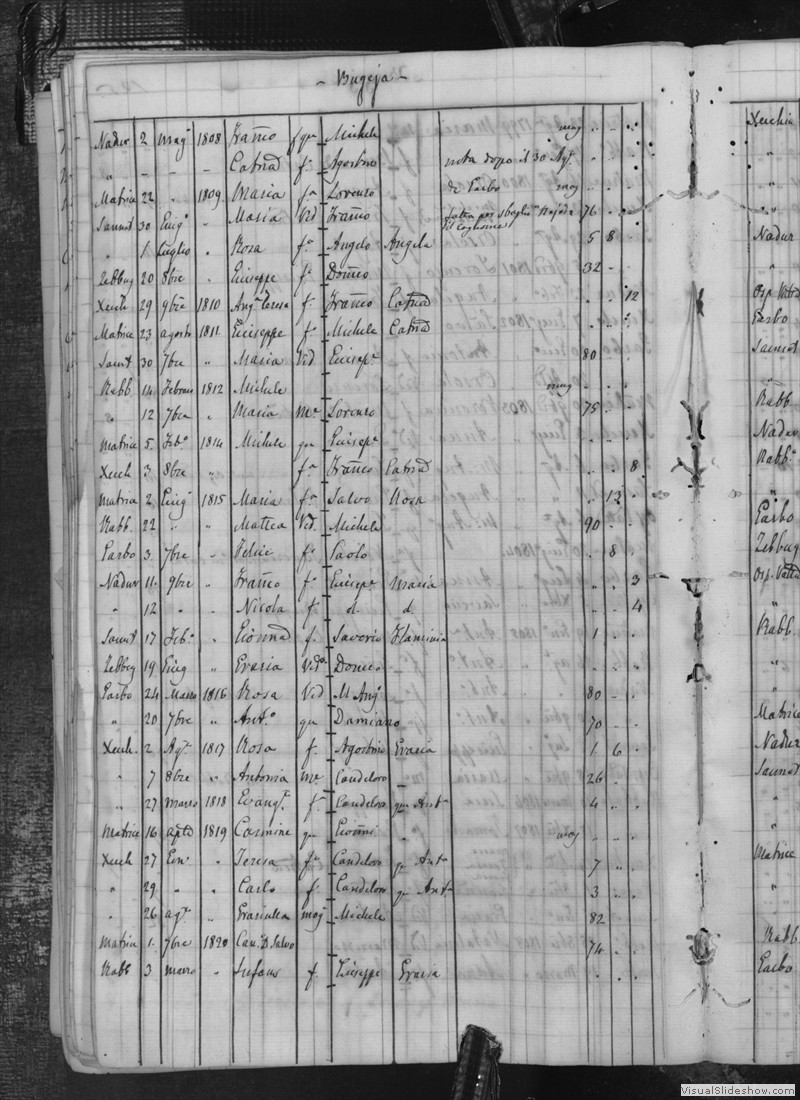 - Bugeja -
Nadur 2 mag° 1808 Franco f qm Michele mag .. .. ..
" - - - Catna f. Agostino nata dopo il 30 Ag°
Matrice 22 " 1809 Maria fa Lorenzo de Garbo mag
Sannat 30 Giug° " Maria Vid Franco 76
" 1 Luglio " Rosa fa Angelo Angela 5 8
Zebbug 20 8bre " Giuseppe f. Domco 32
Xeuch 29 9bre 1810 Anga Teresa f. Franco Catna 12
Matrice 23 agosto 1811 Giuseppe fo Michele Catna
Sannt 30 7bre " Maria Vid Giusepe 80
Rabb 14 Febraro 1812 Michele mag
" 12 7bre " Maria Me Lorenzo 75
Matrice 5. Feb° 1814 Michele qm Giusepe
Xeuch 3 8bre " fa Franco Catna 8
Matrice 2 Giug° 1815 Maria fa Salvo Rosa 13
Rabb. 22 " " Mattea Vid. Michele 90
Garbo 3 7bre " Felice fo Paolo 8
Nadur 11. 9bre " Franco fo Giusepe Maria 3
" 12 " " Nicola f. d. d. 4
Sannt 17 Feb° " Gionna f. Saverio Flaminia 1
Zebbug 19 Giug " Grazia Vida Domco
Garbo 24 Marzo 1816 Rosa Vid M. Ang° 80
" 20 7bre " Ant° qm Damiano 70
Xeuch. 2 Ag° 1817 Rosa f. Agostino Grazia 1 6
" 7 8bre " Antonia me Candeloro 26
" 27 marzo 1818 Evangta f. Candeloro qm Anto 4
Matrice 16 agto 1819 Carmine qm Gionni mag
Xeuch 27 Gen° " Teresa fa Candeloro qm Anto 7
" 29 " " Carlo fo Candeloro qm Anto 3
" 26 ag° " Graziulla mog Michele 82
Matrice 1. 7bre 1820 Can° D. Salvo 74
Rabb 3 marzo " f. Giuseppe Grazia
Xeuchia
"
Nadur
"
Osp. Vittoa
Garbo
Sannat
"
Rabb.
Nadur
Rabb.
"
Garbo
Zebbug
"
Rabb
"
"
Matrice
Nadur
Sannat
"
Matrice
"
"
Rabb
Garbo
VisualSlideshow.com